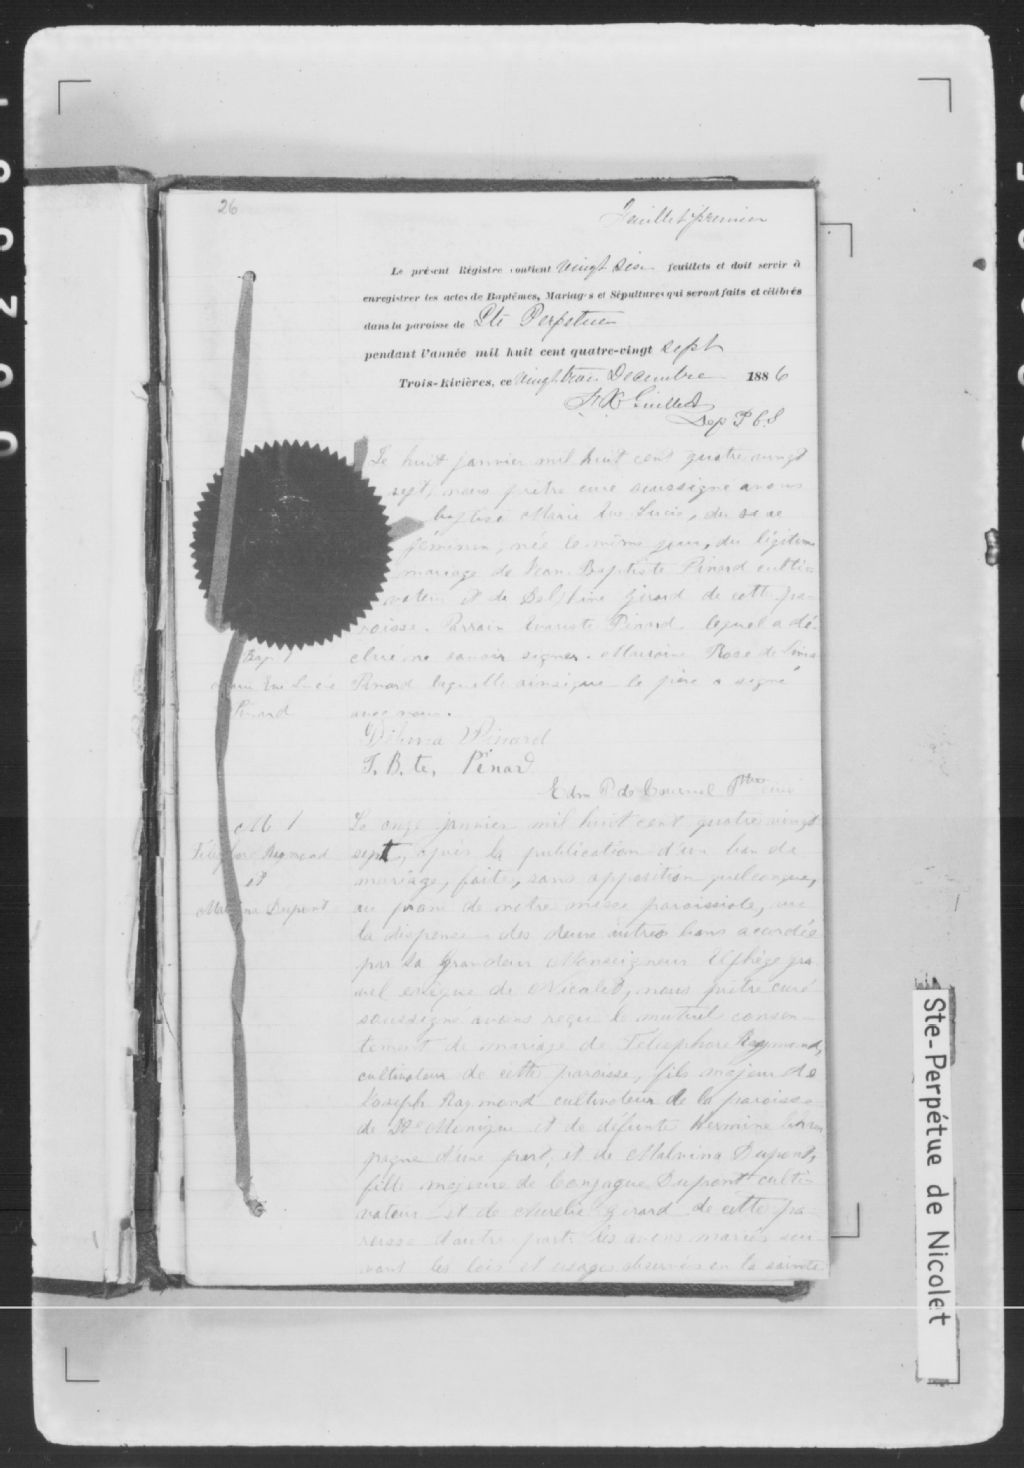 26
Feuillet premier
Le présent Régistre contient vingt six feuillets et doit servir à
enregistrer les actes de Baptêmes, Mariages et Sépultures qui seront faits et célébrés
dans la paroisse de Ste Perpétue
pendant l'année mil huit cent quatre-vingt sept
Trois-Rivières, ce vingt trois Decembre 1886
Dep P C S
Le huit janvier mil huit cent quatre vingt
sept, nous prêtre curé soussigné avons
baptisé Marie Eva Lucie, du sexe
féminin, née le même jour, du légitime
mariage de Jean Baptiste Pinard culti=
vateur et de Delphine Girard de cette pa-
roisse. Parrain Evariste Pinard lequel a dé-
claré ne savoir signer. Marraine Rose de Lima
Pinard laquelle ainsi que le père a signé
avec nous.
Bap 1
Marie Eva Lucie
Pinard
Délima Pinard
J. B. te, Pinard
Ptre curé
M 1
Télesphore Raymond
et
Malvina Dupont
Le onze janvier mil huit cent quatre vingt
sept, après la publication d'un ban de
mariage, faite, sans opposition quelconque,
au prone de notre messe paroissiale, vu
la dispense des deux autres bans accordée
par Sa Grandeur Monseigneur Elphège Gra
vel evêque de Nicolet, nous prêtre curé
soussigné avons reçu le mutuel consen-
tement de mariage de Télesphore Raymond,
cultivateur de cette paroisse, fils majeur de
Joseph Raymond cultivateur de la paroisse
de Ste Monique et de défunte Hermine
d'une part, et de Malvina Dupont,
fille majeure de Gonzague Dupont culti-
vateur et de Aurélie Girard de cette pa
roisse d'autre part les avons mariés sui
vant les lois et usages observés en la sainte
Ste-Perpétue de Nicolet